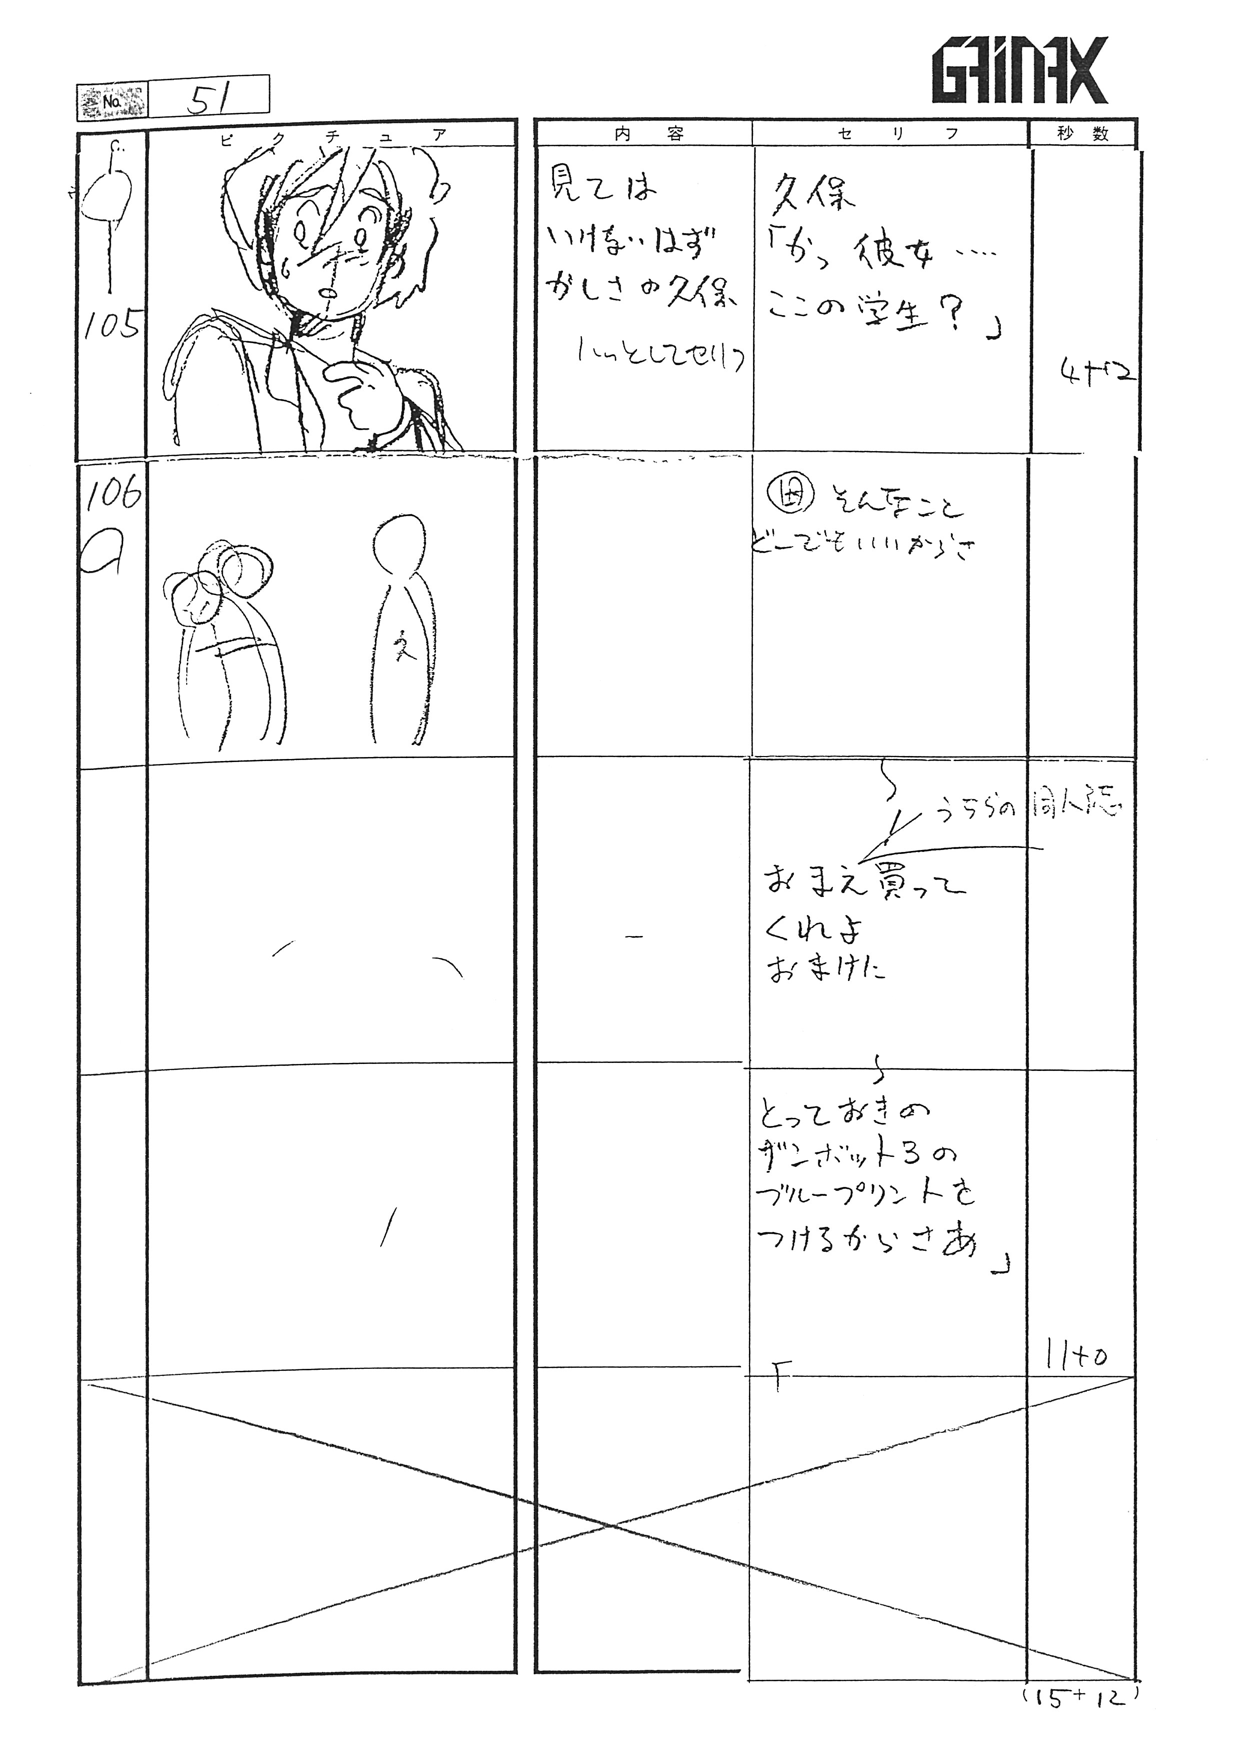 GAINAX
No. 51
C. ピクチュア 内容 セリフ 秒数
105
見ては
いけないはず
かしさの久保
ハッとしてセリフ
久保
「かっ彼女‥‥
ここの学生?」
4+12
106
a
久
田 そんなこと
どーでもいいからさ
うちらの同人誌
おまえ買って
くれよ
おまけに
とっておきの
ザンボット3の
ブループリントを
つけるからさあ」
11+0
(15+12)